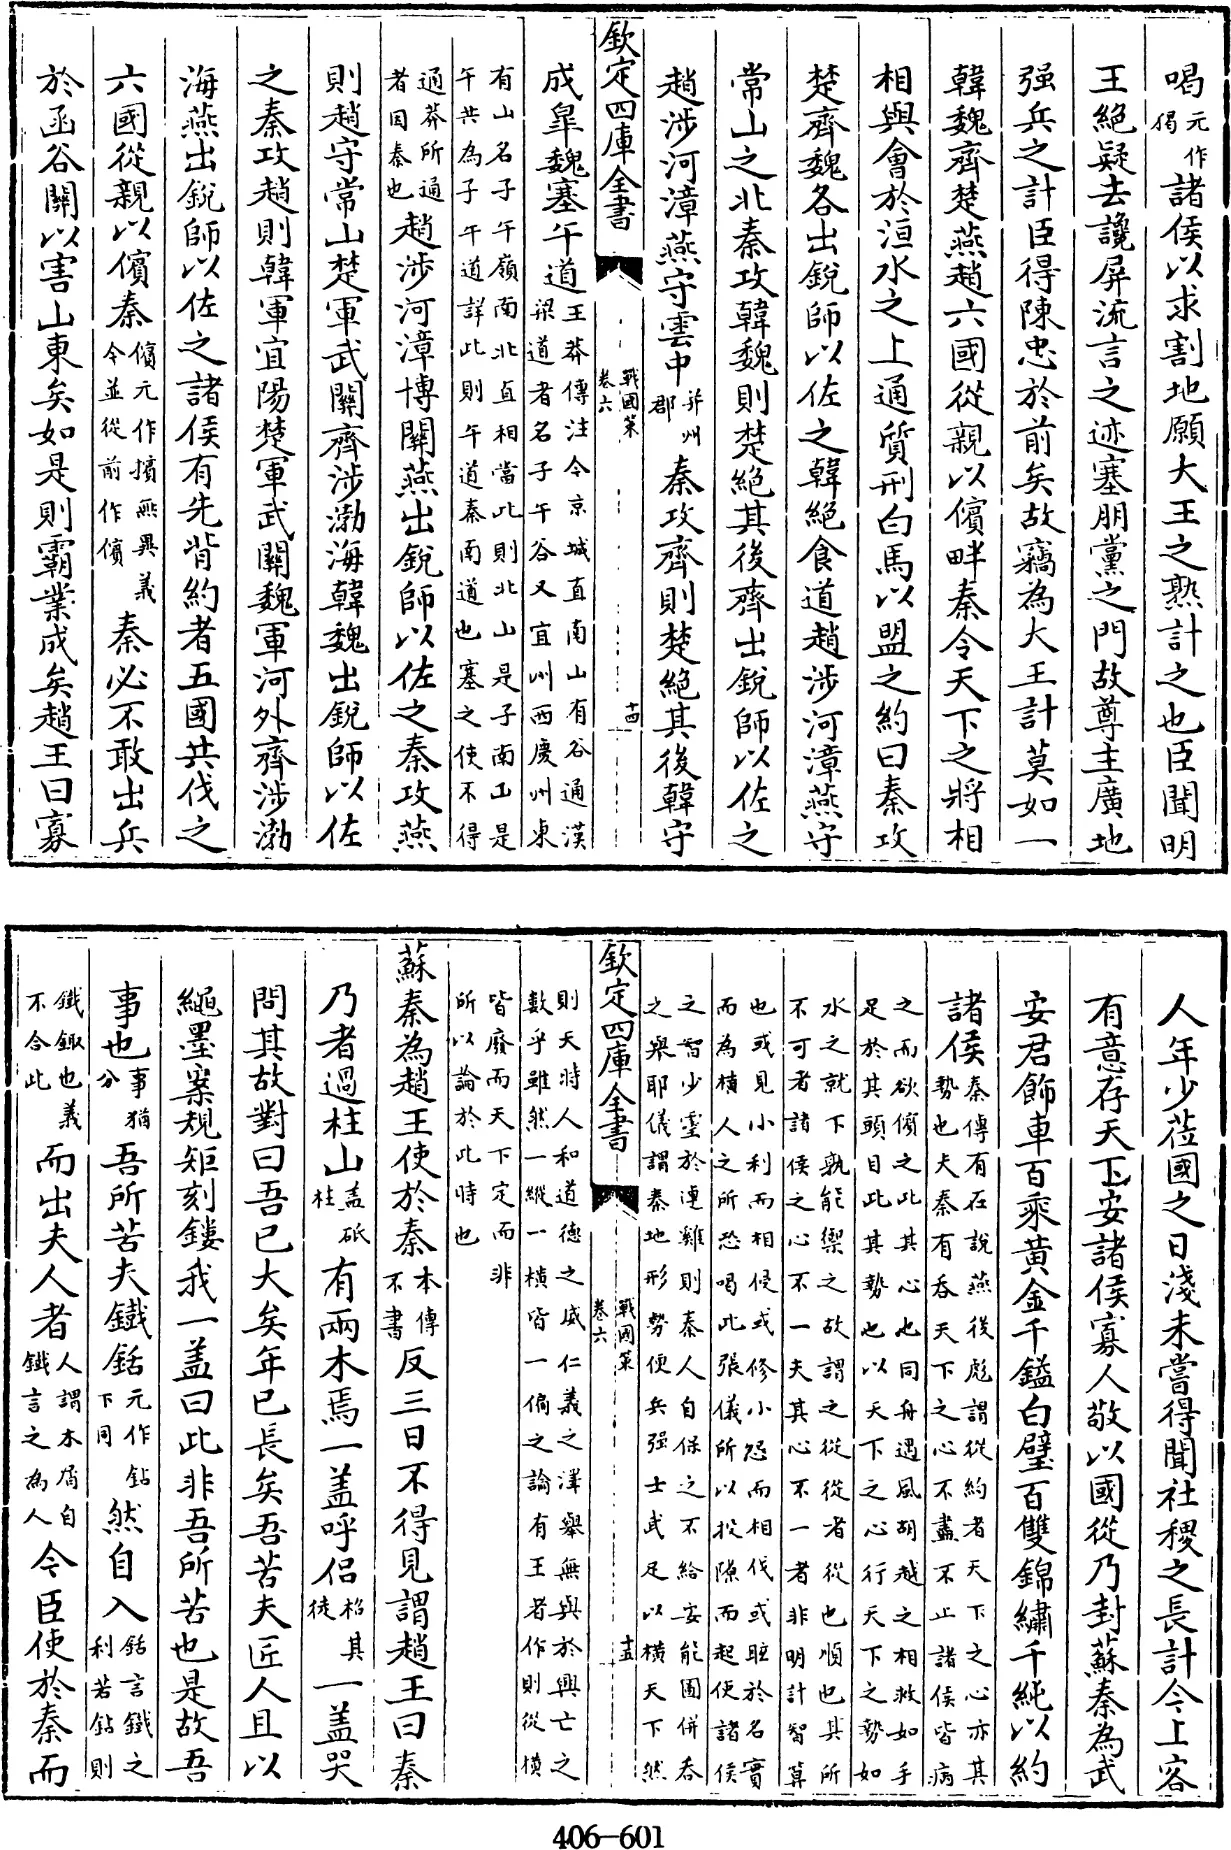 喝元作猲諸侯以求割地願大王之熟計之也臣聞明
王絶疑去讒屏流言之迹塞朋黨之門故尊主廣地
强兵之計臣得陳忠於前矣故竊為大王計莫如一
韓魏齊楚燕趙六國從親以儐畔秦令天下之將相
相與會於洹水之上通質刑白馬以盟之約曰秦攻
楚齊魏各出銳師以佐之韓絶食道趙涉河漳燕守
常山之北秦攻韓魏則楚絶其後齊出銳師以佐之
趙涉河漳燕守雲中并州郡秦攻齊則楚絶其後韓守
欽定四庫全書 戰國策 卷六 十四
成臯魏塞午道王莽傳注今京城直南山有谷通漢梁道者名子午谷又宜州西慶州東
有山名子午嶺南北直相當此則北山是子南山是午共為子午道詳此則午道秦南道也塞之使不得
通莽所通者因秦也趙涉河漳博關燕出銳師以佐之秦攻燕
則趙守常山楚軍武關齊涉渤海韓魏出銳師以佐
之秦攻趙則韓軍宜陽楚軍武關魏軍河外齊涉渤
海燕出銳師以佐之諸侯有先背約者五國共伐之
六國從親以儐秦儐元作擯無異義今並從前作儐秦必不敢出兵
於函谷關以害山東矣如是則霸業成矣趙王曰寡
人年少莅國之日淺未嘗得聞社稷之長計今上客
有意存天下安諸侯寡人敬以國從乃封蘇秦為武
安君飾車百乘黃金千鎰白璧百雙錦繡千純以約
諸侯秦傳有在說燕後彪謂從約者天下之心亦其勢也夫秦有吞天下之心不盡不止諸侯皆病
之而欲儐之此其心也同舟遇風胡越之相救如手足於其頭目此其勢也以天下之心行天下之勢如
水之就下孰能禦之故謂之從從者從也順也其所不可者諸侯之心不一夫其心不一者非明計智算
也或見小利而相侵或修小怨而相伐或眶於名實而為橫人之所恐喝此張儀所以抵隙而起使諸侯
之智少靈於連雞則秦人自保之不給安能圖併吞之舉耶儀謂秦地形勢便兵强士武足以橫天下然
欽定四庫全書 戰國策 卷六 十五
則天時人和道德之威仁義之澤舉無與於興亡之數乎雖然一縱一橫皆一偏之論有王者作則從橫
皆廢而天下定而非所以論於此時也
蘇秦為趙王使於秦本傳不書反三日不得見謂趙王曰秦
乃者過柱山蓋砥柱有兩木焉一蓋呼侣招其徒一蓋哭
問其故對曰吾已大矣年已長矣吾苦夫匠人且以
繩墨案規矩刻鏤我一蓋曰此非吾所苦也是故吾
事也事猶分吾所苦夫鐵銛元作鉆下同然自入銛言鐵之利若鉆則
鐵鈹也義不合此而出夫人者人謂木屑自鐵言之為人今臣使於秦而
406—601